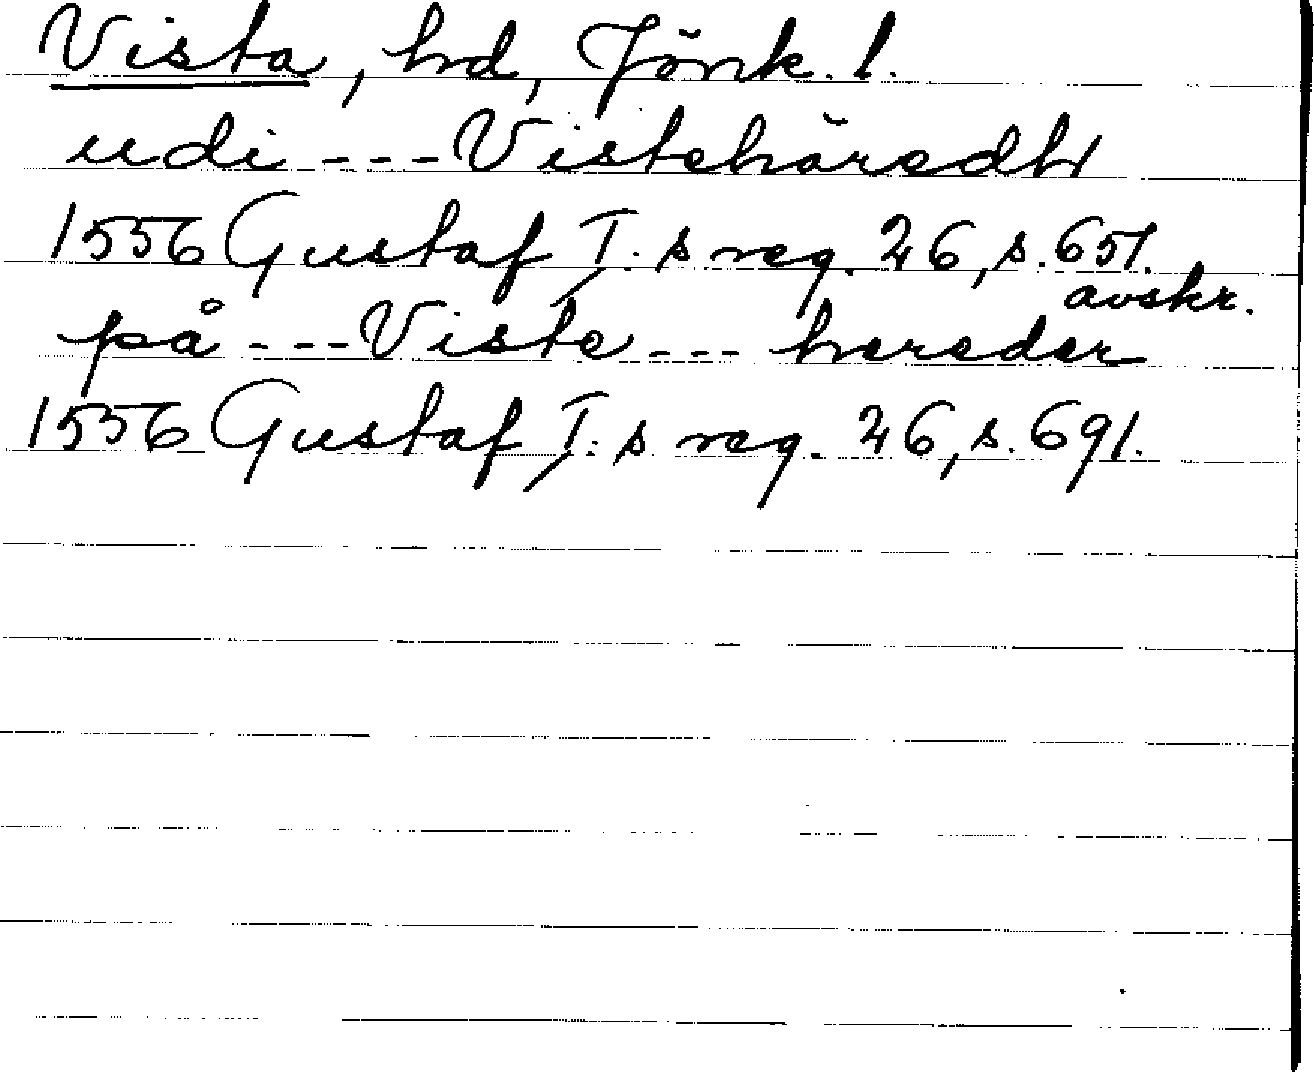 Vista, hd, Jönk. l.
udi --- Vistehäredh
1556 Gustaf I:s reg. 26, s. 651.
avskr.
på --- Viste --- hereder
1556 Gustaf I:s reg. 26, s. 691.